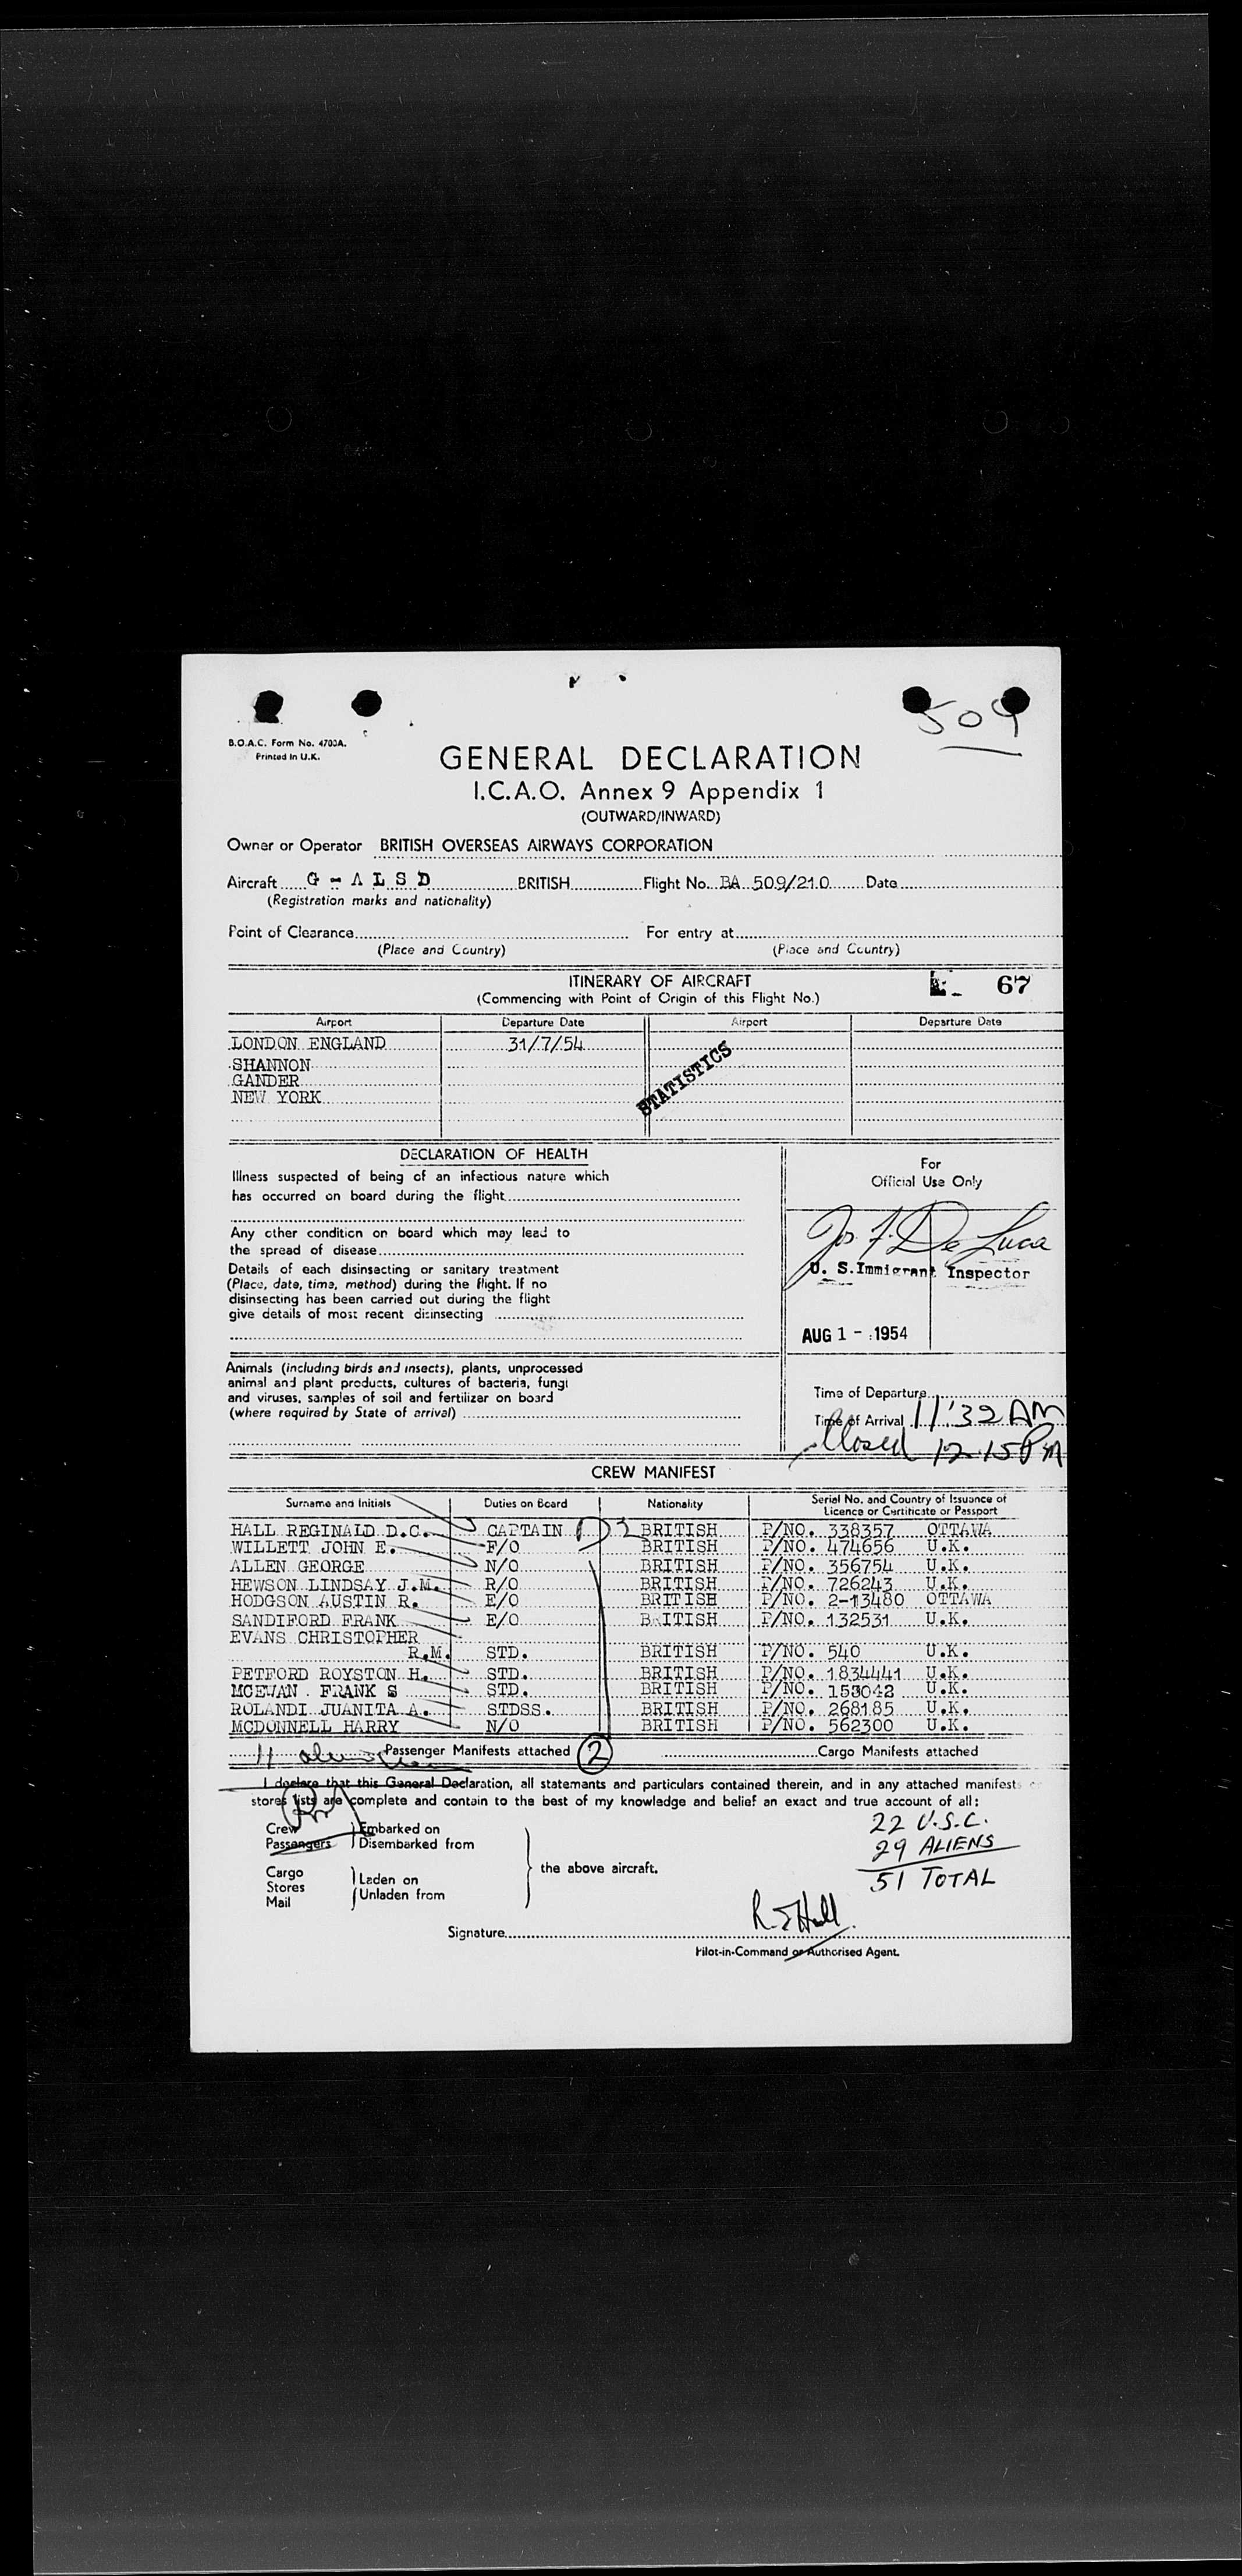 509
B.O.A.C. Form No. 4703A.
Printed in U.K.
GENERAL DECLARATION
I.C.A.O. Annex 9 Appendix 1
(OUTWARD/INWARD)
Owner or Operator BRITISH OVERSEAS AIRWAYS CORPORATION
Aircraft G - A L S D BRITISH Flight No. BA 509/210 Date
(Registration marks and nationality)
Point of Clearance For entry at
(Place and Country) (Place and Country)
ITINERARY OF AIRCRAFT 67
(Commencing with Point of Origin of this Flight No.)
Airport Departure Date Airport Departure Date
LONDON ENGLAND 31/7/54
SHANNON
GANDER
NEW YORK
STATISTICS
DECLARATION OF HEALTH
Illness suspected of being of an infectious nature which
has occurred on board during the flight
Any other condition on board which may lead to
the spread of disease
Details of each disinsecting or sanitary treatment
(Place, date, time, method) during the flight. If no
disinsecting has been carried out during the flight
give details of most recent disinsecting
For
Official Use Only
Jos. F. De Luca
U. S. Immigrant Inspector
AUG 1 - 1954
Animals (including birds and insects), plants, unprocessed
animal and plant products, cultures of bacteria, fungi
and viruses, samples of soil and fertilizer on board
(where required by State of arrival)
Time of Departure
Time of Arrival 11:32 AM
Closed 12.15 PM
CREW MANIFEST
Surname and Initials Duties on Board Nationality Serial No. and Country of Issuance of
Licence or Certificate or Passport
HALL REGINALD D.C. CAPTAIN BRITISH P/NO. 338357 OTTAWA
WILLETT JOHN E. F/O BRITISH P/NO. 474656 U.K.
ALLEN GEORGE N/O BRITISH P/NO. 356754 U.K.
HEWSON LINDSAY J.M. R/O BRITISH P/NO. 726243 U.K.
HODGSON AUSTIN R. E/O BRITISH P/NO. 2-13480 OTTAWA
SANDIFORD FRANK E/O BRITISH P/NO. 132531 U.K.
EVANS CHRISTOPHER
R.M. STD. BRITISH P/NO. 540 U.K.
PETFORD ROYSTON H. STD. BRITISH P/NO. 1834441 U.K.
MCEWAN . FRANK S STD. BRITISH P/NO. 153042 U.K.
ROLANDI JUANITA A. STDSS. BRITISH P/NO. 268185 U.K.
MCDONNELL HARRY N/O BRITISH P/NO. 562300 U.K.
11 Passenger Manifests attached 2 Cargo Manifests attached
I declare that this General Declaration, all statements and particulars contained therein, and in any attached manifests or
stores lists are complete and contain to the best of my knowledge and belief an exact and true account of all:
Crew Embarked on
Passengers Disembarked from
Cargo
Stores
Mail
Laden on
Unladen from
the above aircraft.
22 U.S.C.
29 ALIENS
51 TOTAL
Signature
Pilot-in-Command or Authorised Agent.